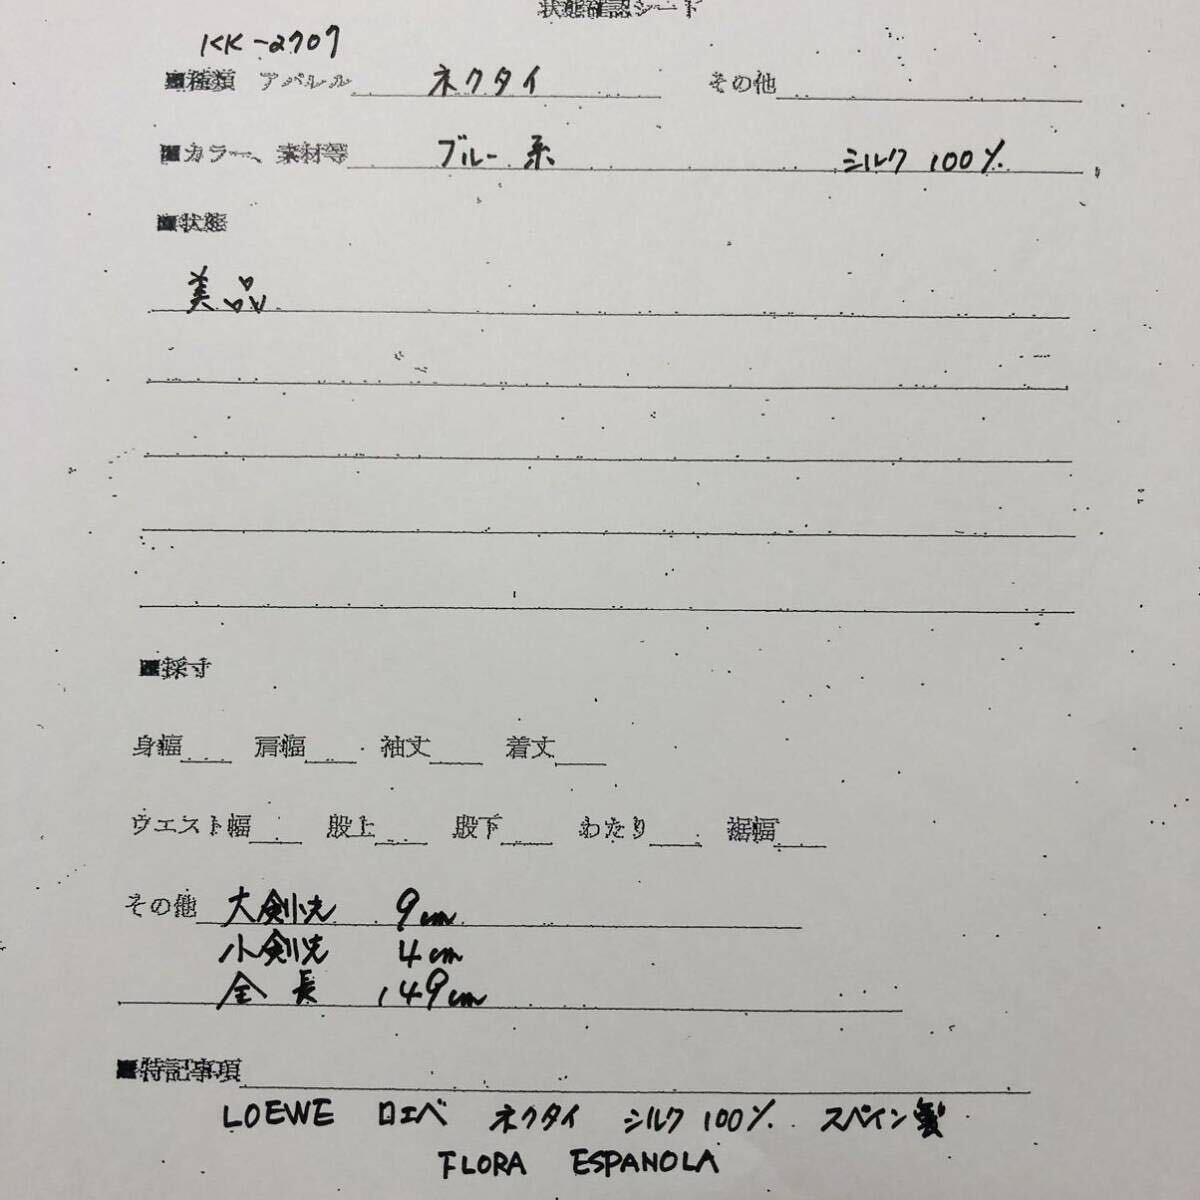 状態確認シート
KK-2707
■種類 アパレル ネクタイ その他
■カラー、素材等 ブルー系 シルク 100%
■状態
美品
■採寸
身幅 肩幅 袖丈 着丈
ウエスト幅 股上 股下 わたり 裾幅
その他 大剣先 9cm
小剣先 4cm
全長 149cm
■特記事項
LOEWE ロエベ ネクタイ シルク 100% スペイン製
FLORA ESPANOLA